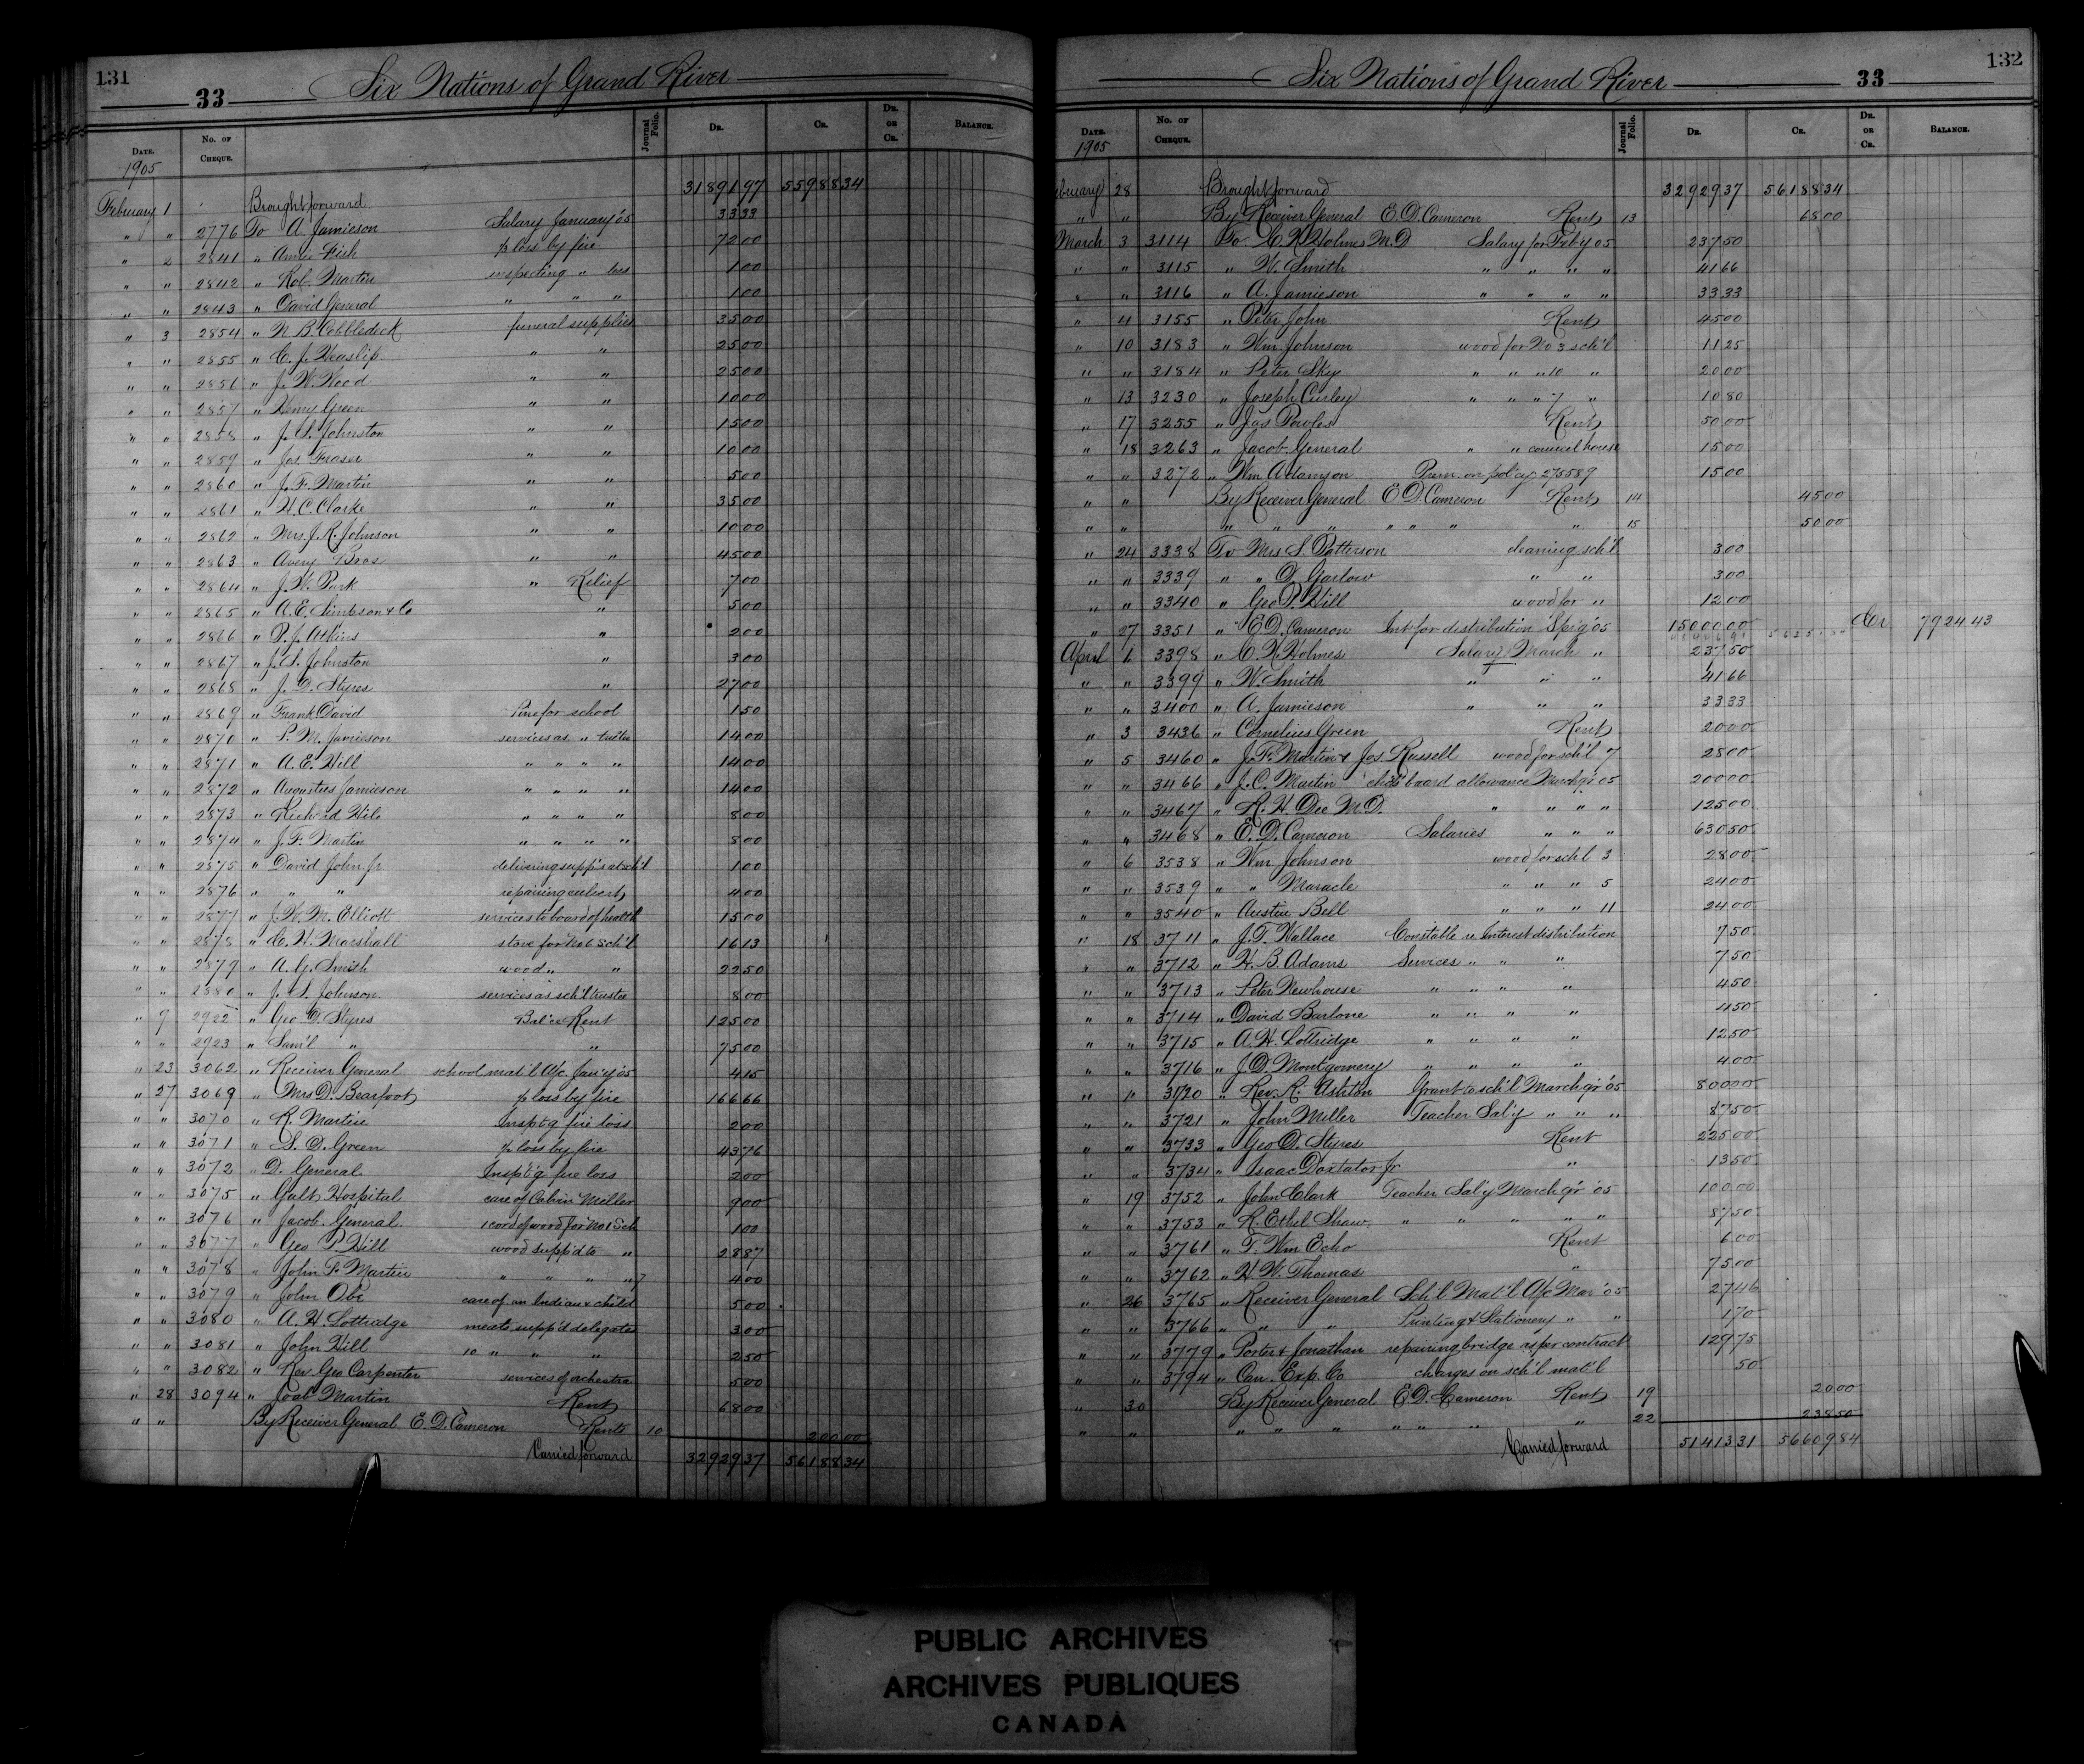 131
33 Six Nations of Grand River
DATE. No. OF CHEQUE. Journal Folio. DR. CR. DR. OR CR. BALANCE.
1905
February 1 Brought forward 3189197 5598834
" " 2776 To A. Jamieson Salary January '05 3333
" 2 2841 " Annie Fish p loss by fire 7200
" " 2842 " Rob. Martin inspecting " loss 100
" " 2843 " David General " " " 100
" 3 2854 " N. B. Cobbledick funeral supplies 3500
" " 2855 " C. J. Heaslip " " 2500
" " 2856 " J. W. Wood " " 2500
" " 2857 " Henry Green " " 1000
" " 2858 " J. S. Johnston " " 1500
" " 2859 " Jos. Fraser " " 1000
" " 2860 " J. F. Martin " " 500
" " 2861 " H. C. Clarke " " 3500
" " 2862 " Mrs. J. R. Johnson " " 1000
" " 2863 " Avery Bros " " 4500
" " 2864 " J. W. Park " Relief 700
" " 2865 " A. E. Simpson & Co " 500
" " 2866 " P. J. Atkins " 200
" " 2867 " J. S. Johnston 300
" " 2868 " J. D. Styres " 2700
" " 2869 " Frank David Pine for school 150
" " 2870 " P. M. Jamieson services as " trustee 1400
" " 2871 " A. E. Hill " " " " 1400
" " 2872 " Augustus Jamieson " " " " 1400
" " 2873 " Richard Hill " " " " 800
" " 2874 " J. F. Martin " " " " 800
" " 2875 " David John Jr. delivering supp's at sch'l 100
" " 2876 " " " repairing culverts 400
" " 2877 " J. W. M. Elliott services to board of health 1500
" " 2878 " C. H. Marshall stove for No 6 Sch'l 1613
" " 2879 " A. G. Smith wood " " 2250
" " 2880 " J. S. Johnson services as sch'l trustee 800
" 9 2922 " Geo. D. Styres Bal'ce Rent 12500
" " 2923 " Sam'l " " 7500
" 23 3062 " Receiver General school mat'l A/c. Jan'y '05 415
" 27 3069 " Mrs D. Bearfoot p loss by fire 16666
" " 3070 " R. Martin Insp't'g fire loss 200
" " 3071 " S. D. Green p loss by fire 4376
" " 3072 " D. General Insp't'g fire loss 200
" " 3075 " Galt Hospital care of Calvin Miller 900
" " 3076 " Jacob General 1 cord of wood for No 1 Sch 100
" " 3077 " Geo P. Hill wood supp'd to " 2887
" " 3078 " John F. Martin " " " " 7 400
" " 3079 " John Obe care of an Indian & child 500
" " 3080 " A. H. Lottridge meals supp'd delegates 300
" " 3081 " John Hill 10 " " " 250
" " 3082 " Rev. Geo Carpenter services of orchestra 500
" 28 3094 " Joab Martin Rent 6800
" " By Receiver General E. D. Cameron Rents 10 20000
Carried forward 3292937 5618834
132
Six Nations of Grand River 33
DATE. No. OF CHEQUE. Journal Folio. DR. CR. DR. OR CR. BALANCE.
1905
February 28 Brought forward 3292937 5618834
" " By Receiver General E. D. Cameron Rent 13 6800
March 3 3114 To L. H. Holmes M.D Salary for Feb'y 05 23750
" " 3115 " W. Smith " " " " 4166
" " 3116 " A. Jamieson " " " " 3333
" 4 3155 " Peter John Rent 4500
" 10 3183 " Wm Johnson wood for No 3 sch'l 1125
" " 3184 " Peter Sky " " " 10 " 2000
" 13 3230 " Joseph Curley " " " 7 " 1080
" 17 3255 " Jas Powles Rent 5000
" 18 3263 " Jacob General " " council house 1500
" " 3272 " Wm Adamson Prem. on policy 275589 1500
" " By Receiver General E D. Cameron Rent 14 4500
" " " " " " " " " 15 5000
" 24 3338 To Mrs S. Patterson cleaning sch'l 300
" " 3339 " " D. Garlow " " 300
" " 3340 " Geo P. Hill wood for " 1200
" 27 3351 " E. D. Cameron Int for distribution Sp'g '05 1500000 Cr 792443
April 1 3398 " C. H. Holmes Salary March " 23750
" " 3399 " W. Smith " " " 4166
" " 3400 " A. Jamieson " " " 3333
" 3 3436 " Cornelius Green Rent 2000
" 5 3460 " J. F. Martin & Jos. Russell wood for sch'l 7 2800
" " 3466 " J. C. Martin sch'l board allowance March q'r 05 20000
" " 3467 " R. H. Dee M.D. " " " " 12500
" " 3468 " E. D. Cameron Salaries " " " 63050
" 6 3538 " Wm Johnson wood for sch'l 3 2800
" " 3539 " " Maracle " " " 5 2400
" " 3540 " Austin Bell " " " 11 2400
" 18 3711 " J. T. Wallace Constable re Interest distribution 750
" " 3712 " H. B. Adams Services " " " 750
" " 3713 " Peter Newhouse " " " " 450
" " 3714 " David Barlone " " " " 450
" " 3715 " A. H. Lottridge " " " " 1250
" " 3716 " J. D. Montgomery " " " " 400
" " 3720 " Rev. R. Ashton Grant to sch'l March q'r '05 80000
" " 3721 " John Miller Teacher Sal'y " " " 8750
" " 3733 " Geo D. Styres Rent 22500
" " 3734 " Isaac Doxtator Jr " 1350
" 19 3752 " John Clark Teacher Sal'y March q'r '05 10000
" " 3753 " R. Ethel Shaw " " " " " 8750
" " 3761 " T. Wm Echo Rent 600
" " 3762 " H. W. Thomas " 7500
" 26 3765 " Receiver General Sch'l Mat'l A/c Mar '05 2746
" " 3766 " " " Printing & Stationery " " 170
" " 3779 " Porter & Jonathan repairing bridge as per contract 12975
" " 3794 " Can. Exp. Co charges on sch'l mat'l 50
" 30 By Receiver General E. D. Cameron Rent 19 2000
" " " " " " " " " 22 23850
Carried forward 5141331 5660984
PUBLIC ARCHIVES
ARCHIVES PUBLIQUES
CANADA